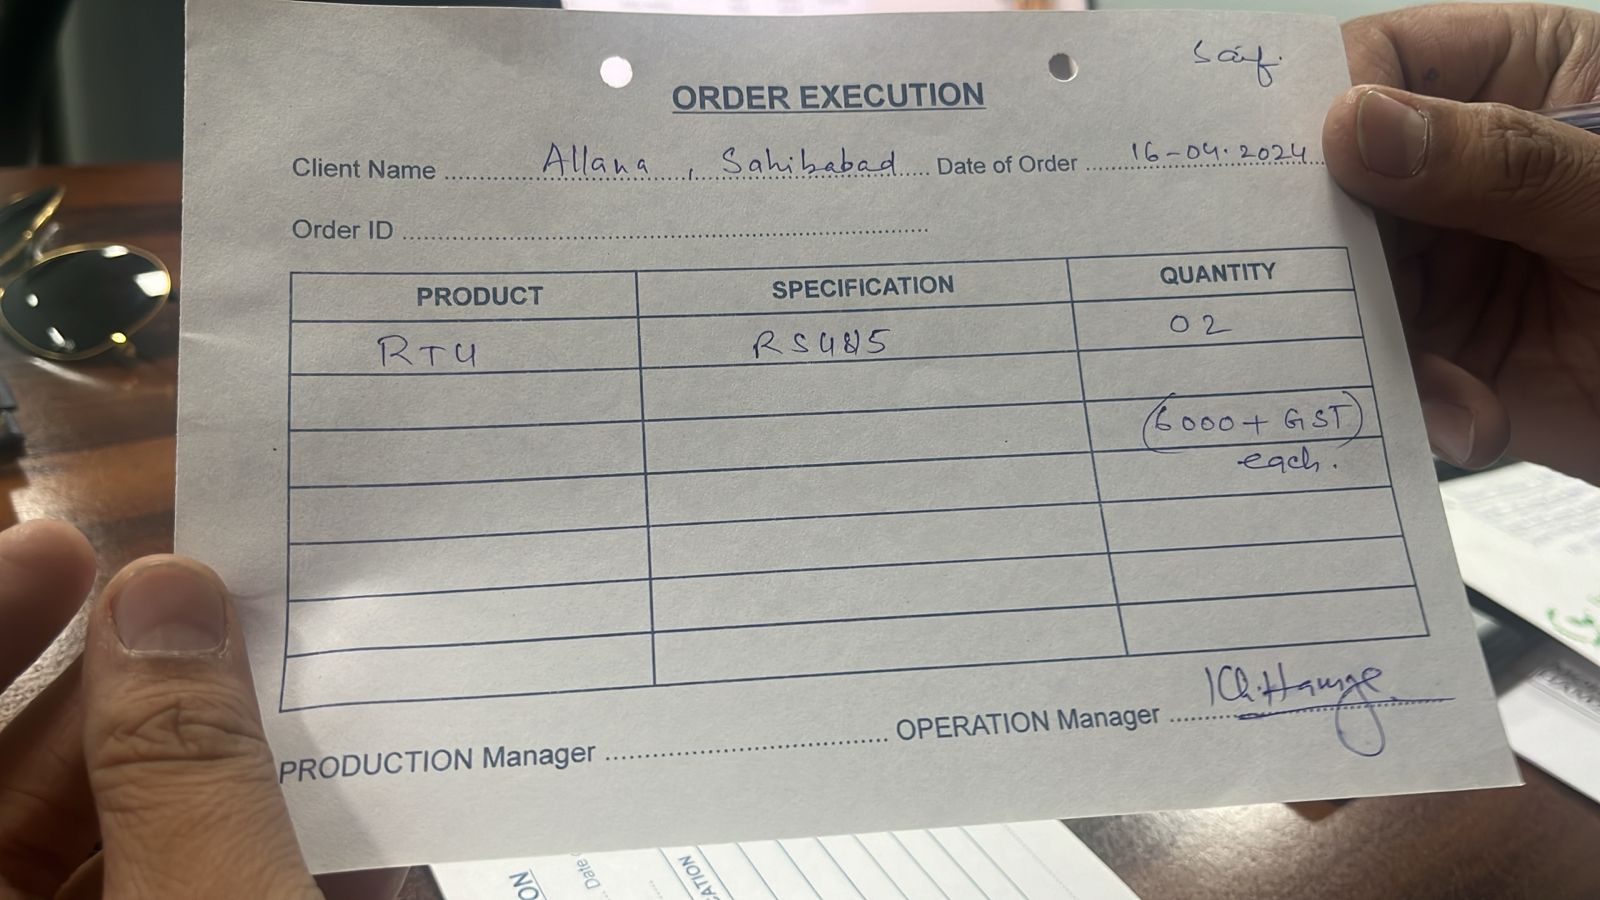 Saif.
ORDER EXECUTION
Client Name .......... Allana, Sahibabad ..... Date of Order ..... 16-04.2024 ...
Order ID ..........
PRODUCT SPECIFICATION QUANTITY
RTU RS485 02
(6000 + GST)
each.
PRODUCTION Manager .......... OPERATION Manager ..........
ON
Date
CATION